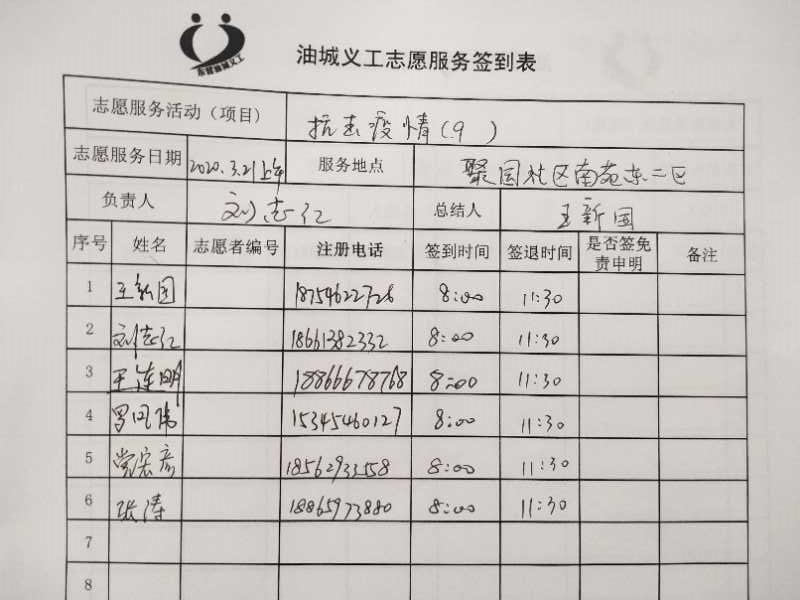 东营油城义工
油城义工志愿服务签到表
志愿服务活动（项目） 抗击疫情(9)
志愿服务日期 2020.3.21上午 服务地点 聚园社区南苑东二区
负责人 刘志红 总结人 王新国
序号 姓名 志愿者编号 注册电话 签到时间 签退时间 是否签免责申明 备注
1 王新国 18754622726 8:00 11:30
2 刘志红 18661382332 8:00 11:30
3 王连明 18866678768 8:00 11:30
4 罗同伟 15345460127 8:00 11:30
5 党宏彦 18562933558 8:00 11:30
6 张涛 18865973880 8:00 11:30
7
8